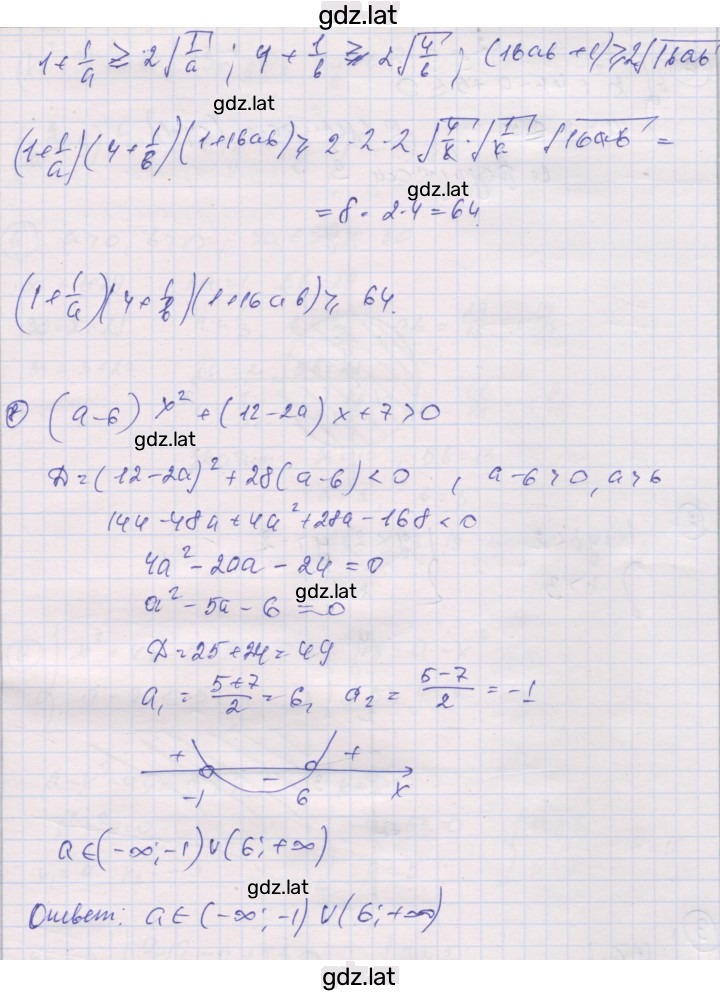 gdz.lat
1 + 1/a ≥ 2√(1/a) ; 4 + 1/b ≥ 2√(4/b) ; (16ab + 1) ≥ 2√(16ab)
gdz.lat
(1 + 1/a)(4 + 1/b)(1+16ab) ≥ 2·2·2 √(4/b)·√(1/a) √(16ab) =
gdz.lat
= 8 · 2·4 = 64.
(1 + 1/a)(4 + 1/b)(1+16ab) ≥ 64.
(a-6) x² + (12-2a) x + 7 > 0
gdz.lat
D = (12-2a)² + 28(a-6) < 0 , a-6>0, a>6
144 - 48a + 4a² + 28a - 168 < 0
4a² - 20a - 24 = 0
gdz.lat
a² - 5a - 6 = 0
D = 25 + 24 = 49
a₁ = (5+7)/2 = 6, a₂ = (5-7)/2 = -1
+ - +
-1 6 x
a ∈ (-∞; -1) ∪ (6; +∞)
gdz.lat
Ответ: a ∈ (-∞; -1) ∪ (6; +∞)
gdz.lat